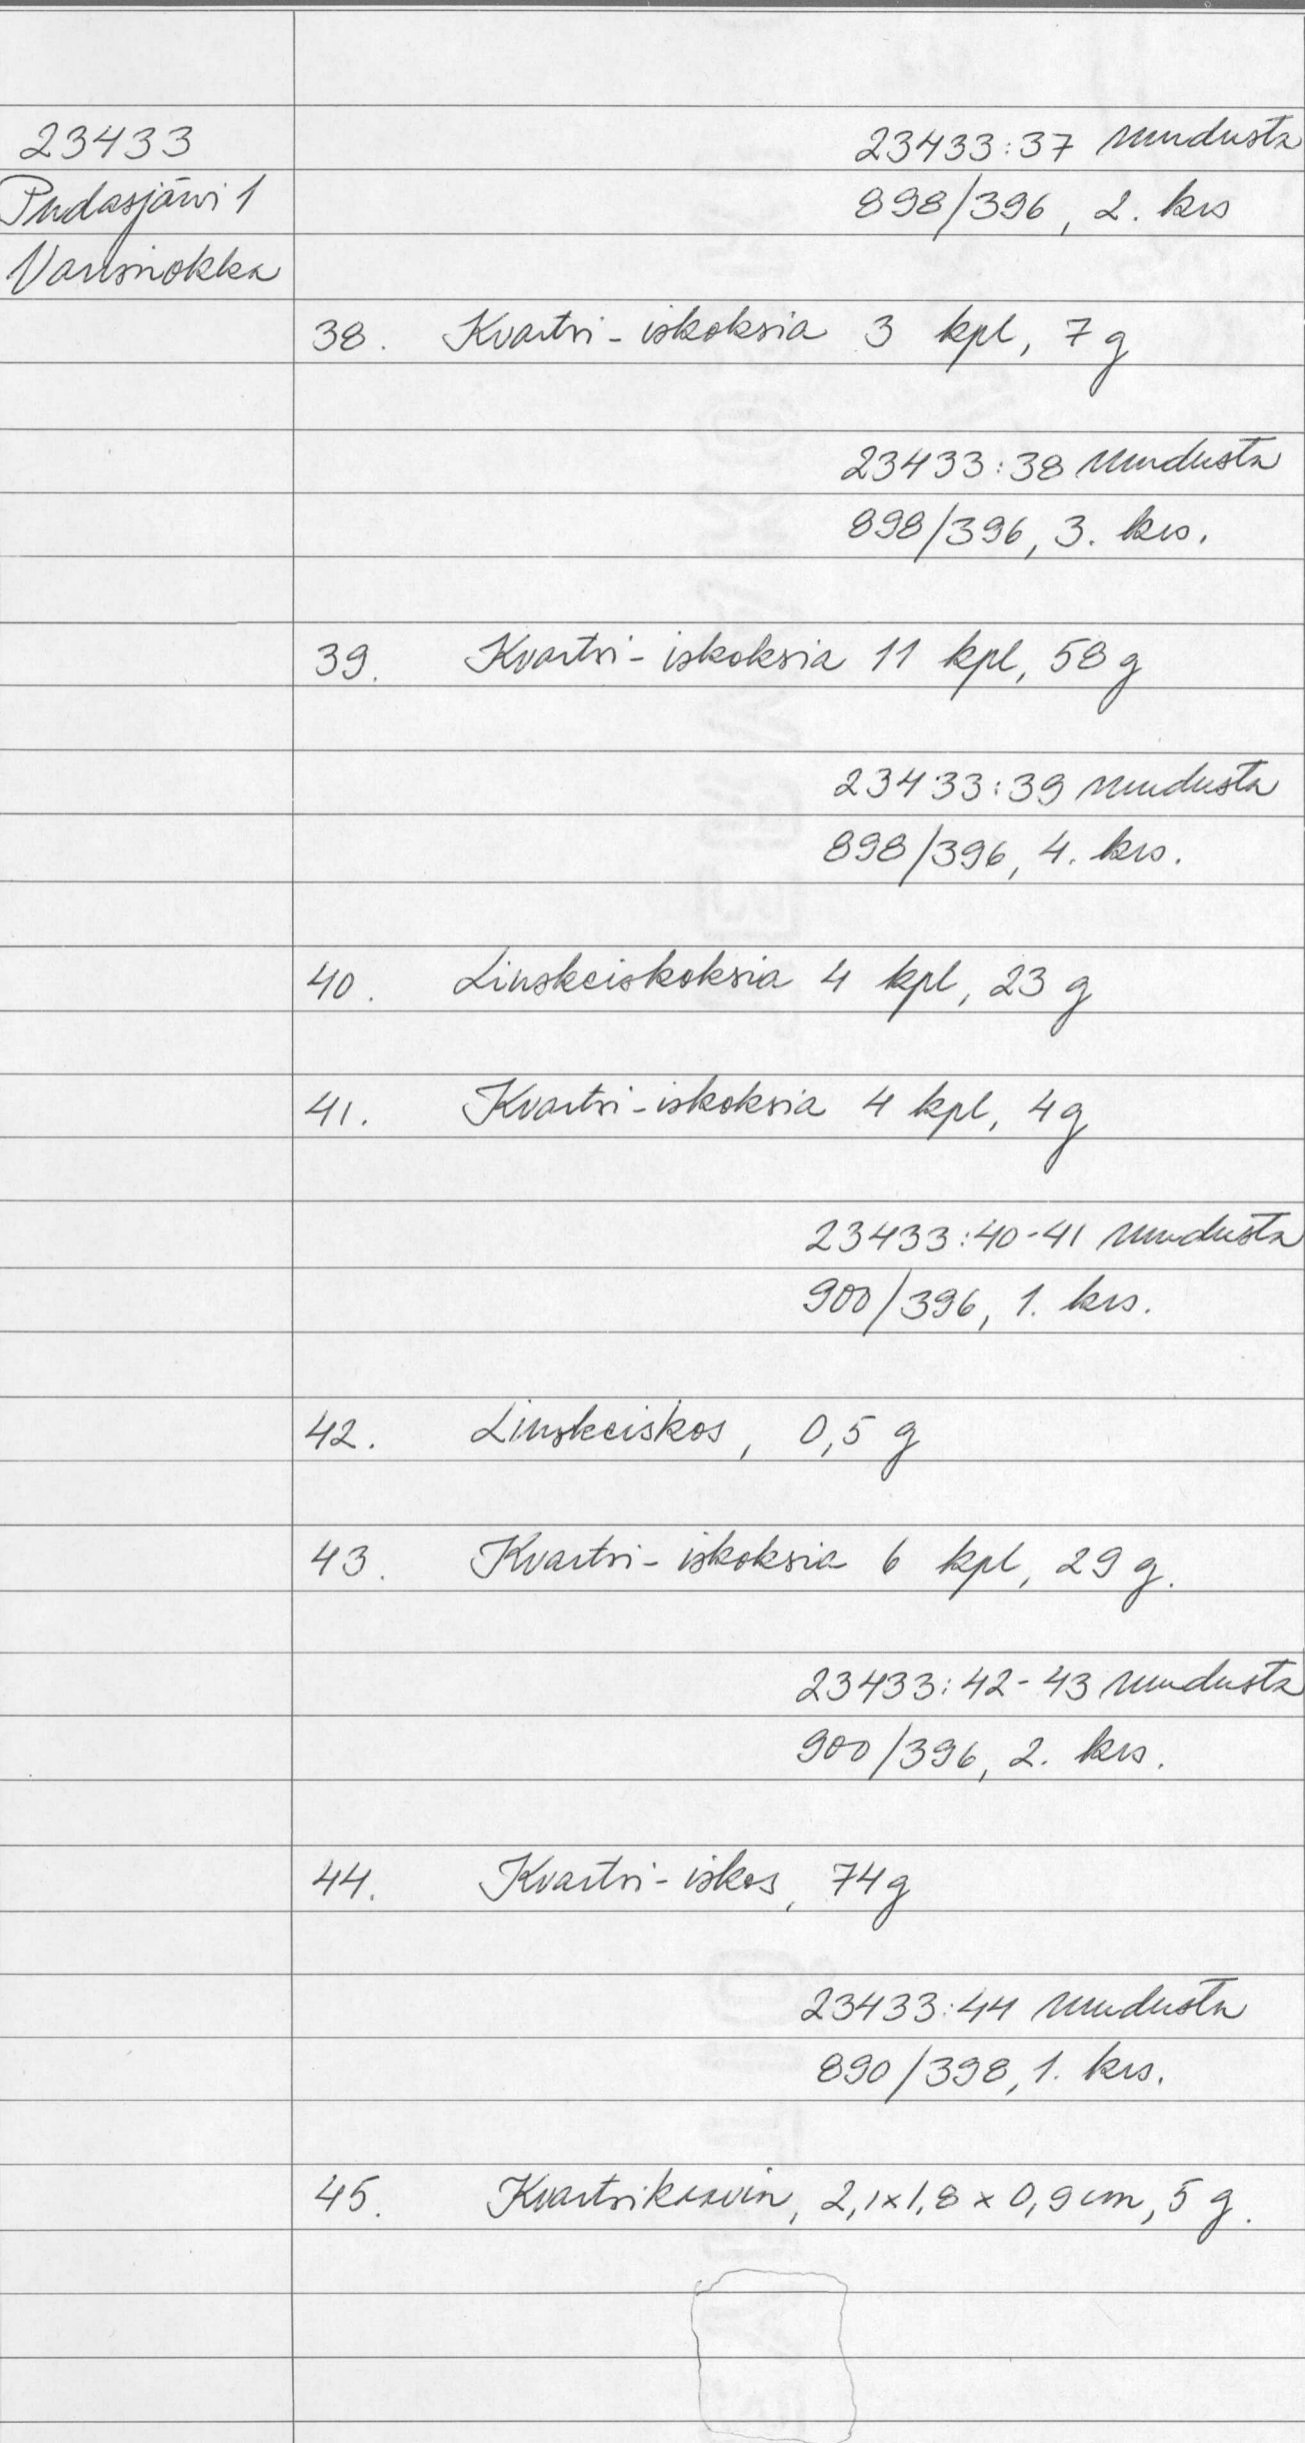 23433
Pudasjärvi 1
Varisnokka
23433:37 ruudusta
898/396, 2. krs
38. Kvartsi-iskoksia 3 kpl, 7 g
23433:38 ruudusta
898/396, 3. krs.
39. Kvartsi-iskoksia 11 kpl, 58 g
23433:39 ruudusta
898/396, 4. krs.
40. Liuskeiskoksia 4 kpl, 23 g
41. Kvartsi-iskoksia 4 kpl, 4 g
23433:40-41 ruudusta
900/396, 1. krs.
42. Liuskeiskos, 0,5 g
43. Kvartsi-iskoksia 6 kpl, 29 g.
23433:42-43 ruudusta
900/396, 2. krs.
44. Kvartsi-iskos, 74 g
23433:44 ruudusta
890/398, 1. krs.
45. Kvartsikaavin, 2,1x1,8 x 0,9 cm, 5 g.